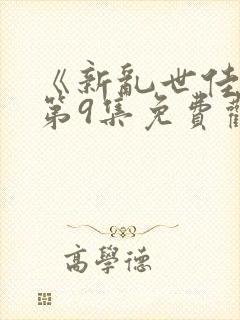 《新亂世佳
第9集免費
高學德